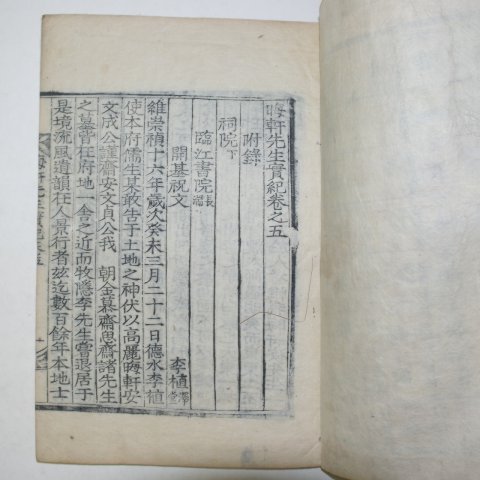 晦軒先生實紀卷之五
附錄
祠院下
臨江書院 長湍
開基祝文
李植 澤堂
維崇禎十六年歲次癸未三月二十二日德水李植
使本府儒生某敢告于土地之神伏以高麗晦軒安
文成公謹齋安文貞公我 朝金慕齋思齋諸先生
之墓皆在府地一舍之近而牧隱李先生嘗退居于
是境流風遺韻在人景行者玆迄數百餘年本地士